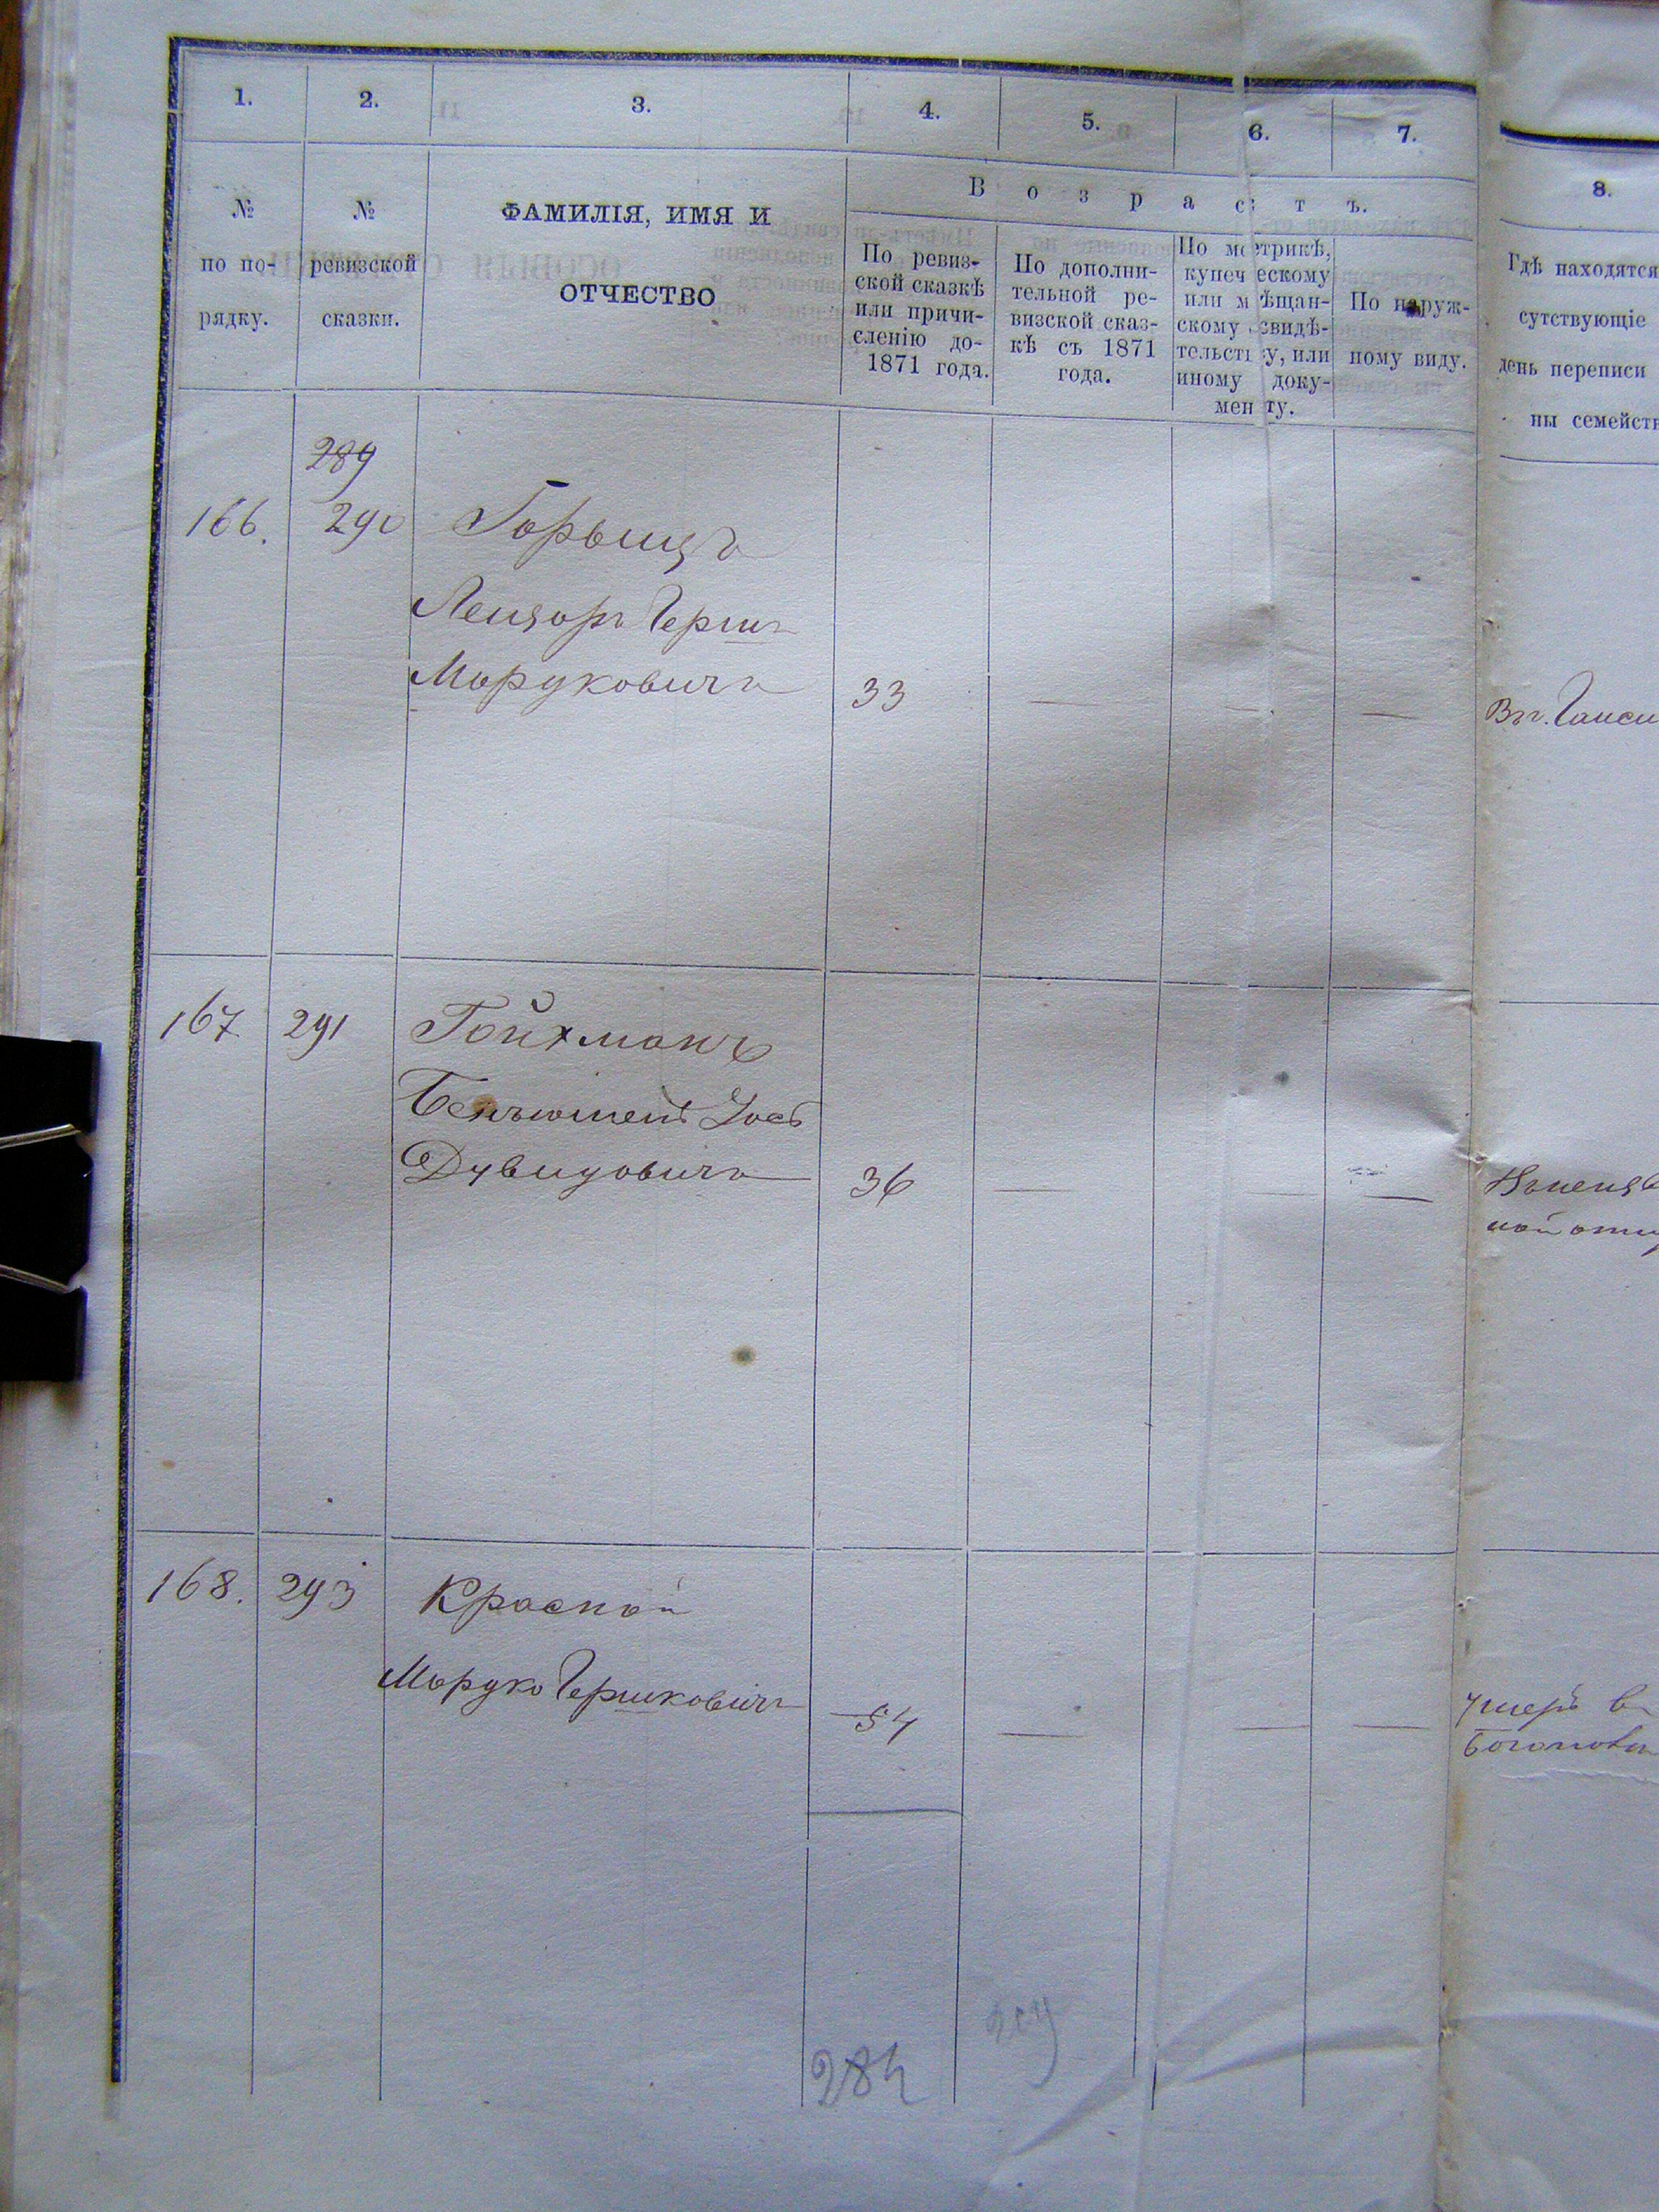 1. 2. 3. 4. 5. 6. 7.
8.
№
по по-
рядку.
№
ревизской
сказки.
ФАМИЛІЯ, ИМЯ И
ОТЧЕСТВО
Возрастъ.
По ревиз-
ской сказкѣ
или причи-
сленію до-
1871 года.
По дополни-
тельной ре-
визской сказ-
кѣ съ 1871
года.
По метрикѣ,
купеческому
или мѣщан-
скому свидѣ-
тельству, или
иному доку-
менту.
По наруж-
ному виду.
Гдѣ находятся
сутствующіе
день переписи
ны семейств
289
166. 290
Лейзоръ Герш
Мордковичъ 33 — — —
167. 291 Гойхманъ
Дувидовичъ 36 — — —
168. 293 Красной
Мордко Гершковичъ 54 — — — умеръ в
284